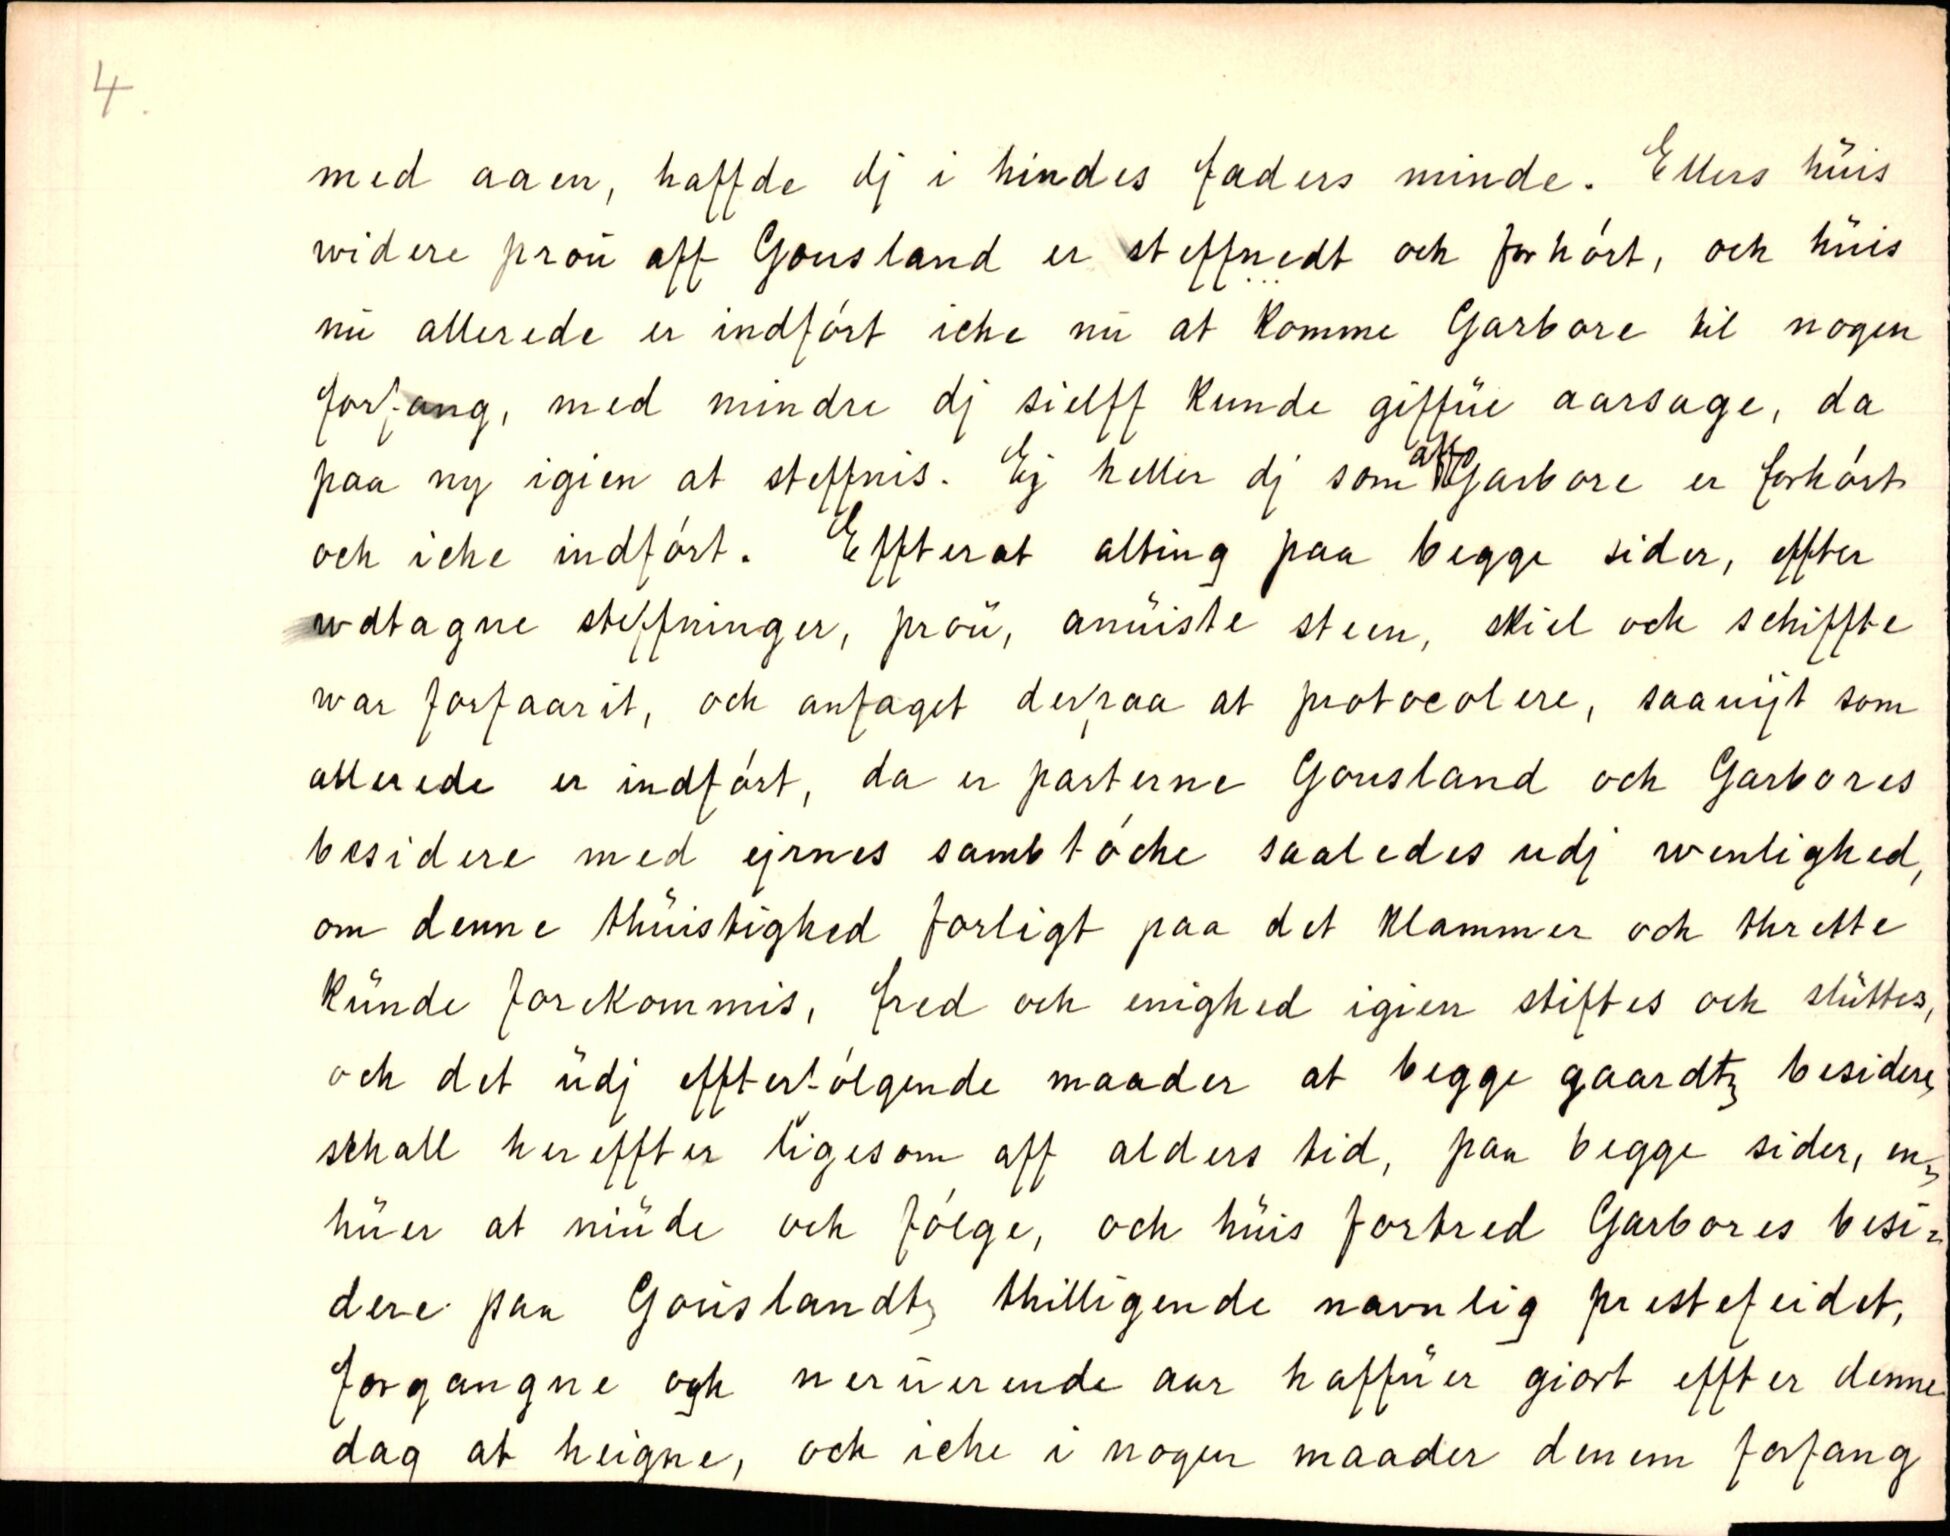 4.
med aaen, haffde dj i hindes faders minde. Ellers hüis
widere proü aff Gousland er steffnedt och forhórt, och hüis
nü allerede er indfórt iche nü at komme Garbore til nogen
forfang, med mindre dj sielff kunde giffüe aarsage, da
paa ny igien at steffnis. Ej heller dj som aff Garbore er forhórt
och iche indfórt. Effterat alting paa begge sider, effter
wdtagne steffninger, proü, anüiste steen, skiel och schiffte
war forfaarit, och anfaget derpaa at protocolere, saauijt som
allerede er indfórt, da er parterne Gousland och Garbores
besidere med ejrnes sambtóche saaledes udj wenlighed,
om denne thüistighed forligt paa det klammer och thrette
künde forekommis, fred och enighed igien stiftes och slüttes,
och det üdj effterfólgende maader at begge gaardtz besidere,
schall hereffter ligesom aff alders tid, paa begge sider, en=
hüer at niüde och fólge, och hüis fortred Garbores besi=
dere paa Goüslandtz thilligende navnlig prestefeidet,
forgangne och nerüerende aar haffüer giort effter denne
dag at heigne, och iche i nogen maader denem forfang